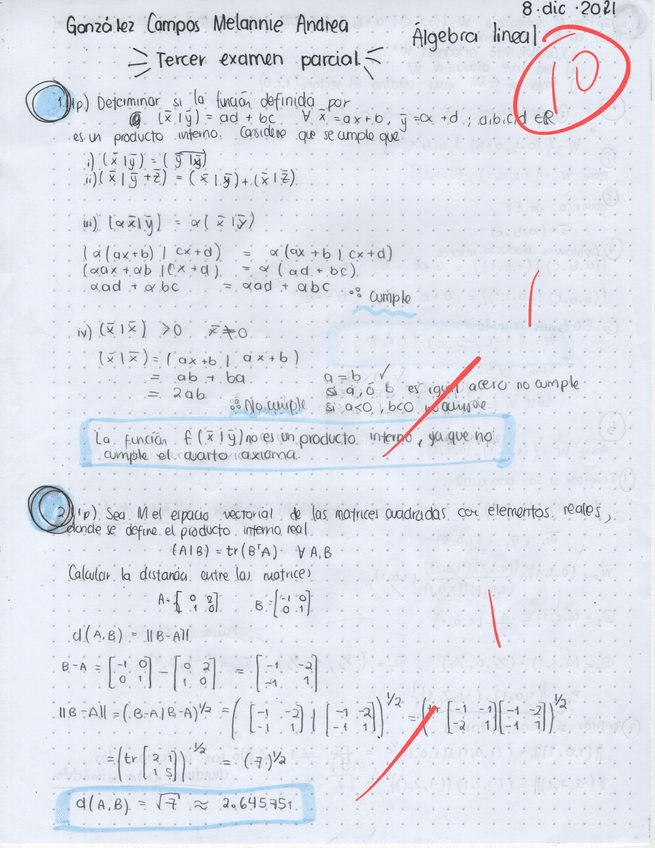 8 · dic · 2021
González Campos Melannie Andrea
Álgebra lineal
Tercer examen parcial
10
1. (1p.) Determinar si la función definida por
(x̄|ȳ) = ad + bc ∀ x̄ = ax+b, ȳ = cx+d ; a,b,c,d ∈ ℝ
es un producto interno. Considere que se cumple que
i) (x̄|ȳ) = (ȳ|x̄)
ii) (x̄|ȳ+z̄) = (x̄|ȳ)+(x̄|z̄)
iii) (αx̄|ȳ) = α(x̄|ȳ)
(α(ax+b) | cx+d) = α(ax+b | cx+d)
(αax+αb | cx+d) = α(ad+bc)
αad + αbc = αad + αbc ∴ cumple
1
iv) (x̄|x̄) > 0 x̄ ≠ 0
(x̄|x̄) = (ax+b | ax+b)
= ab + ba a=b ✓
= 2ab si a, ó b es igual a cero no cumple
∴ No cumple si a<0, b<0 no cumple
La función f(x̄|ȳ) no es un producto interno, ya que no
cumple el cuarto axioma.
2. (1p). Sea M el espacio vectorial de las matrices cuadradas con elementos reales,
donde se define el producto interno real.
(A|B) = tr(BᵀA) ∀ A,B
Calcular la distancia entre las matrices
A=[0 2; 1 0] B=[-1 0; 0 1]
1
d(A,B) = ||B-A||
B-A = [-1 0; 0 1] - [0 2; 1 0] = [-1 -2; -1 1]
||B-A|| = (B-A|B-A)^1/2 = ([-1 -2; -1 1] | [-1 -2; -1 1])^1/2 = (tr [-1 -1; -2 1][-1 -2; -1 1])^1/2
= (tr [2 1; 1 5])^1/2 = (7)^1/2
d(A,B) = √7 ≈ 2.645751